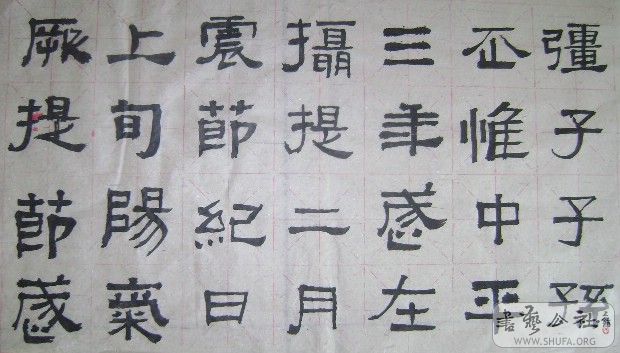 彊子子孫
惟中平
三年歲在
攝提二月
震節紀日
上旬陽氣
厥提節歲
書藝公社
WWW.SHUFA.ORG